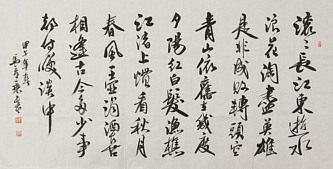 滚〻長江東逝水
浪花淘盡英雄
是非成敗轉頭空
青山依舊在幾度
夕陽紅白髮漁樵
江渚上慣看秋月
春風一壺濁酒喜
相逢古今多少事
都付笑談中
甲午年春